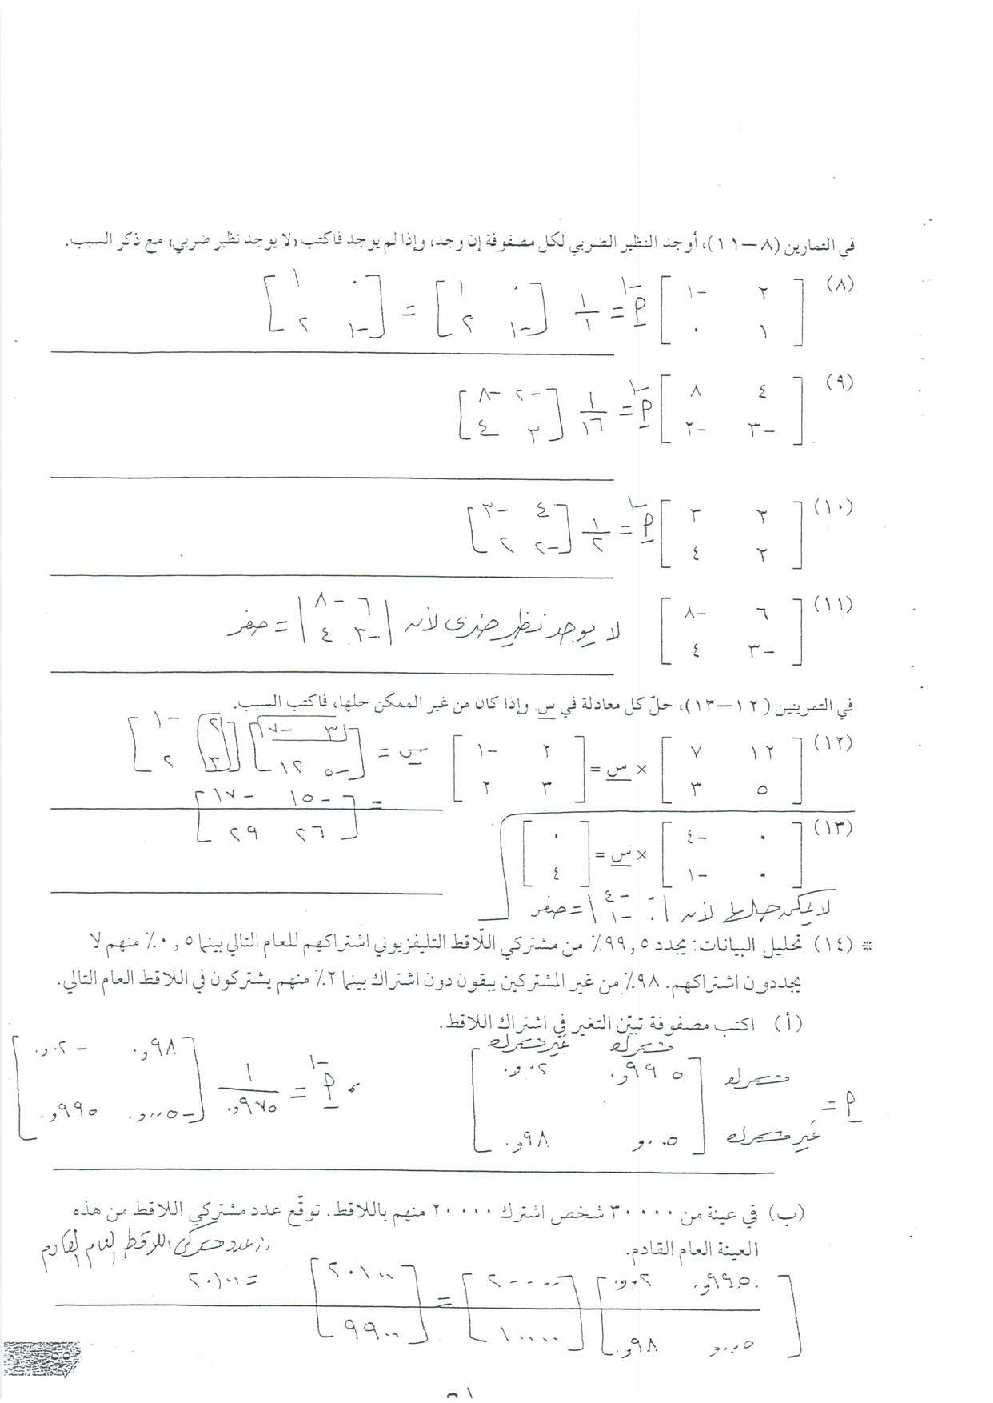 في التمارين (٨ – ١١)، أوجد النظير الضربي لكل مصفوفة إن وجد، وإذا لم يوجد فاكتب «لا يوجد نظير ضربي» مع ذكر السبب.
(٨) [ ٢ -١ ] أ⁻¹ = ١/١ [ ٠ ١ ] = [ ٠ ١ ]
[ ١ ٠ ] [ -١ ٢ ] [ -١ ٢ ]
(٩) [ ٤ ٨ ] أ⁻¹ = ١/١٦ [ -٢ -٨ ]
[ -٣ -٢ ] [ ٣ ٤ ]
(١٠) [ ٢ ٣ ] أ⁻¹ = ١/٢ [ ٤ -٣ ]
[ ٢ ٤ ] [ -٢ ٢ ]
(١١) [ ٦ -٨ ] لا يوجد نظير ضربي لأنه | ٦ -٨ | = صفر
[ -٣ ٤ ] | -٣ ٤ |
في التمريتين (١٢ – ١٣)، حلّ كل معادلة في س. وإذا كان من غير الممكن حلها، فاكتب السبب.
(١٢) [ ١٢ ٧ ] × س = [ ٢ -١ ] س = [ ٣ -٧ ] [ ٢ -١ ]
[ ٥ ٣ ] [ ٣ ٢ ] [ -٥ ١٢ ] [ ٣ ٢ ]
= [ -١٥ -١٧ ]
[ ٢٦ ٢٩ ]
(١٣) [ ٠ -٤ ] × س = [ ٠ ]
[ ٠ -١ ] [ ٤ ]
لا يمكن حلها لأنه | ٠ -٤ | = صفر
| ٠ -١ |
* (١٤) تحليل البيانات: يجدد ٩٩,٥٪ من مشتركي اللّاقط التليفزيوني اشتراكهم للعام التالي بينما ٠,٥٪ منهم لا
يجددون اشتراكهم. ٩٨٪ من غير المشتركين يبقون دون اشتراك بينما ٢٪ منهم يشتركون في اللاقط العام التالي.
(أ) اكتب مصفوفة تبيّن التغير في اشتراك اللاقط.
مشترك غير مشترك
أ = مشترك [ ٠,٩٩٥ ٠,٠٢ ] ، أ⁻¹ = ١/٠,٩٧٥ [ ٠,٩٨ -٠,٠٢ ]
غير مشترك [ ٠,٠٠٥ ٠,٩٨ ] [ -٠,٠٠٥ ٠,٩٩٥ ]
(ب) في عينة من ٣٠٠٠٠ شخص اشترك ٢٠٠٠٠ منهم باللاقط. توقّع عدد مشتركي اللاقط من هذه
العينة العام القادم.
∴ عدد مشتركي اللاقط العام القادم
[ ٠,٩٩٥ ٠,٠٢ ] [ ٢٠٠٠٠ ] = [ ٢٠١٠٠ ] = ٢٠١٠٠
[ ٠,٠٠٥ ٠,٩٨ ] [ ١٠٠٠٠ ] [ ٩٩٠٠ ]